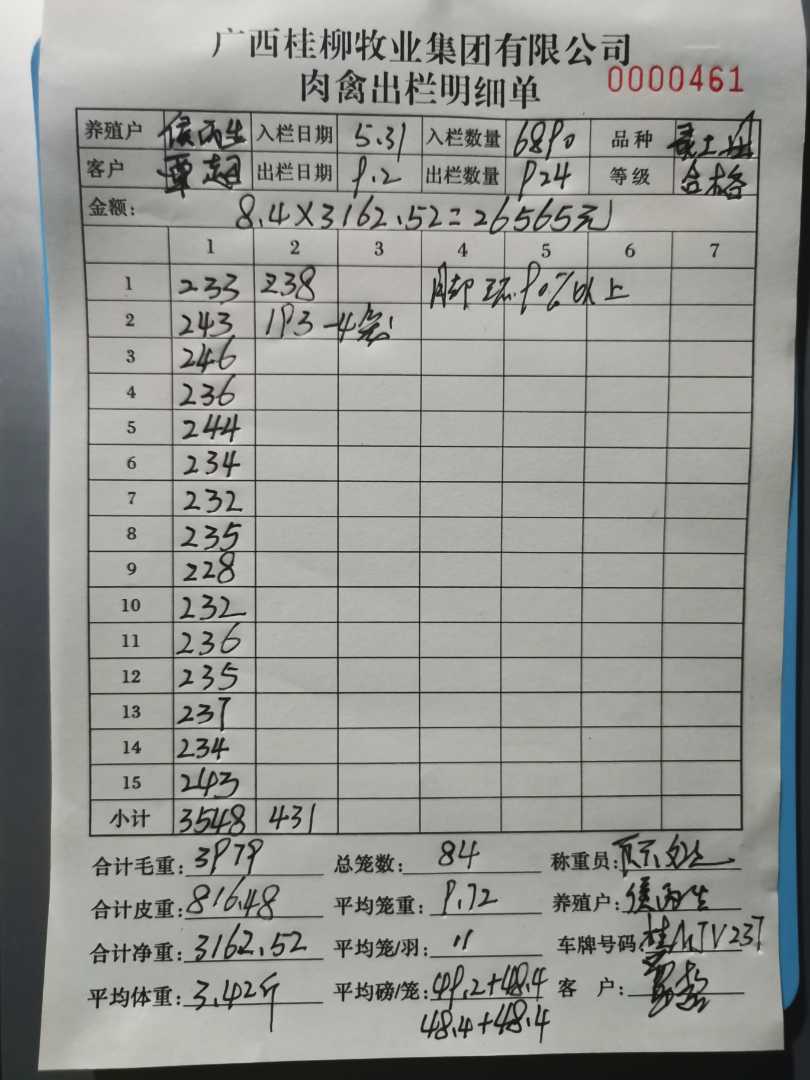 广西桂柳牧业集团有限公司
肉禽出栏明细单 0000461
养殖户 侯丙生 入栏日期 5.31 入栏数量 6890 品种
客户 覃超 出栏日期 9.2 出栏数量 924 等级 合格
金额: 8.4×3162.52=26565元
1 2 3 4 5 6 7
1 233 238 90%以上
2 243 193-4
3 246
4 236
5 244
6 234
7 232
8 235
9 228
10 232
11 236
12 235
13 237
14 234
15 243
小计 3548 431
合计毛重: 3979 总笼数: 84 称重员:
合计皮重: 816.48 平均笼重: 9.72 养殖户: 侯丙生
合计净重: 3162.52 平均笼/羽: 11 车牌号码:
平均体重: 3.42斤 平均磅/笼: 49.2+48.4 客 户:
48.4+48.4